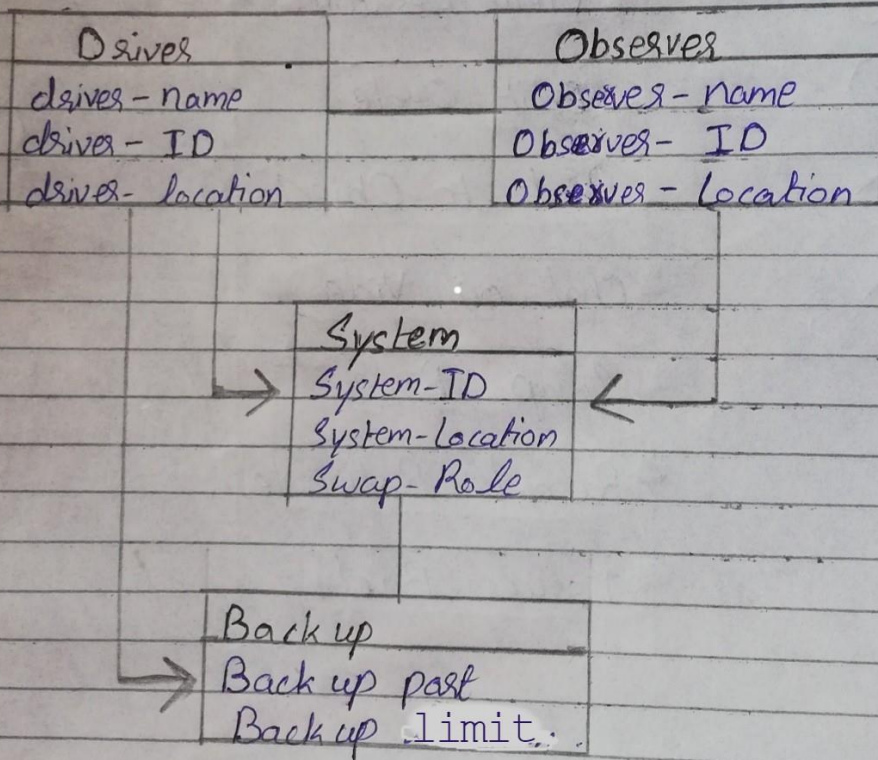 Driver
driver-name
driver-ID
driver-location
Observer
Observer-name
Observer-ID
Observer-Location
System
System-ID
System-Location
Swap-Role
Back up
Back up part
Back up limit